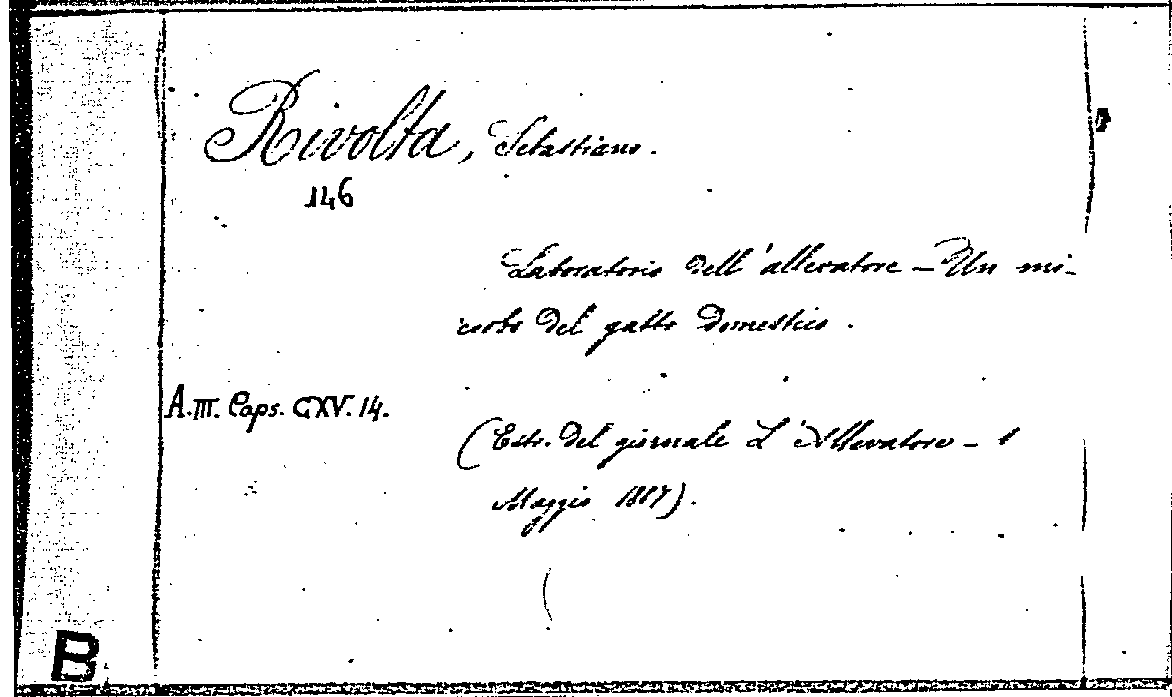 Rivolta, Sebastiano.
146
Laboratorio dell'allevatore - Un mi-
crobo del gatto domestico.
A. III. Caps. CXV. 14.
(Estr. del giornale L'Allevatore - 1
Maggio 1887).
B